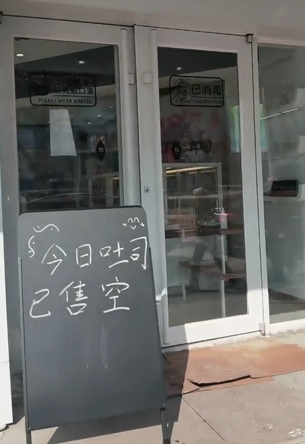 已消毒
PLEASE WEAR A MASK
今日吐司
已售空